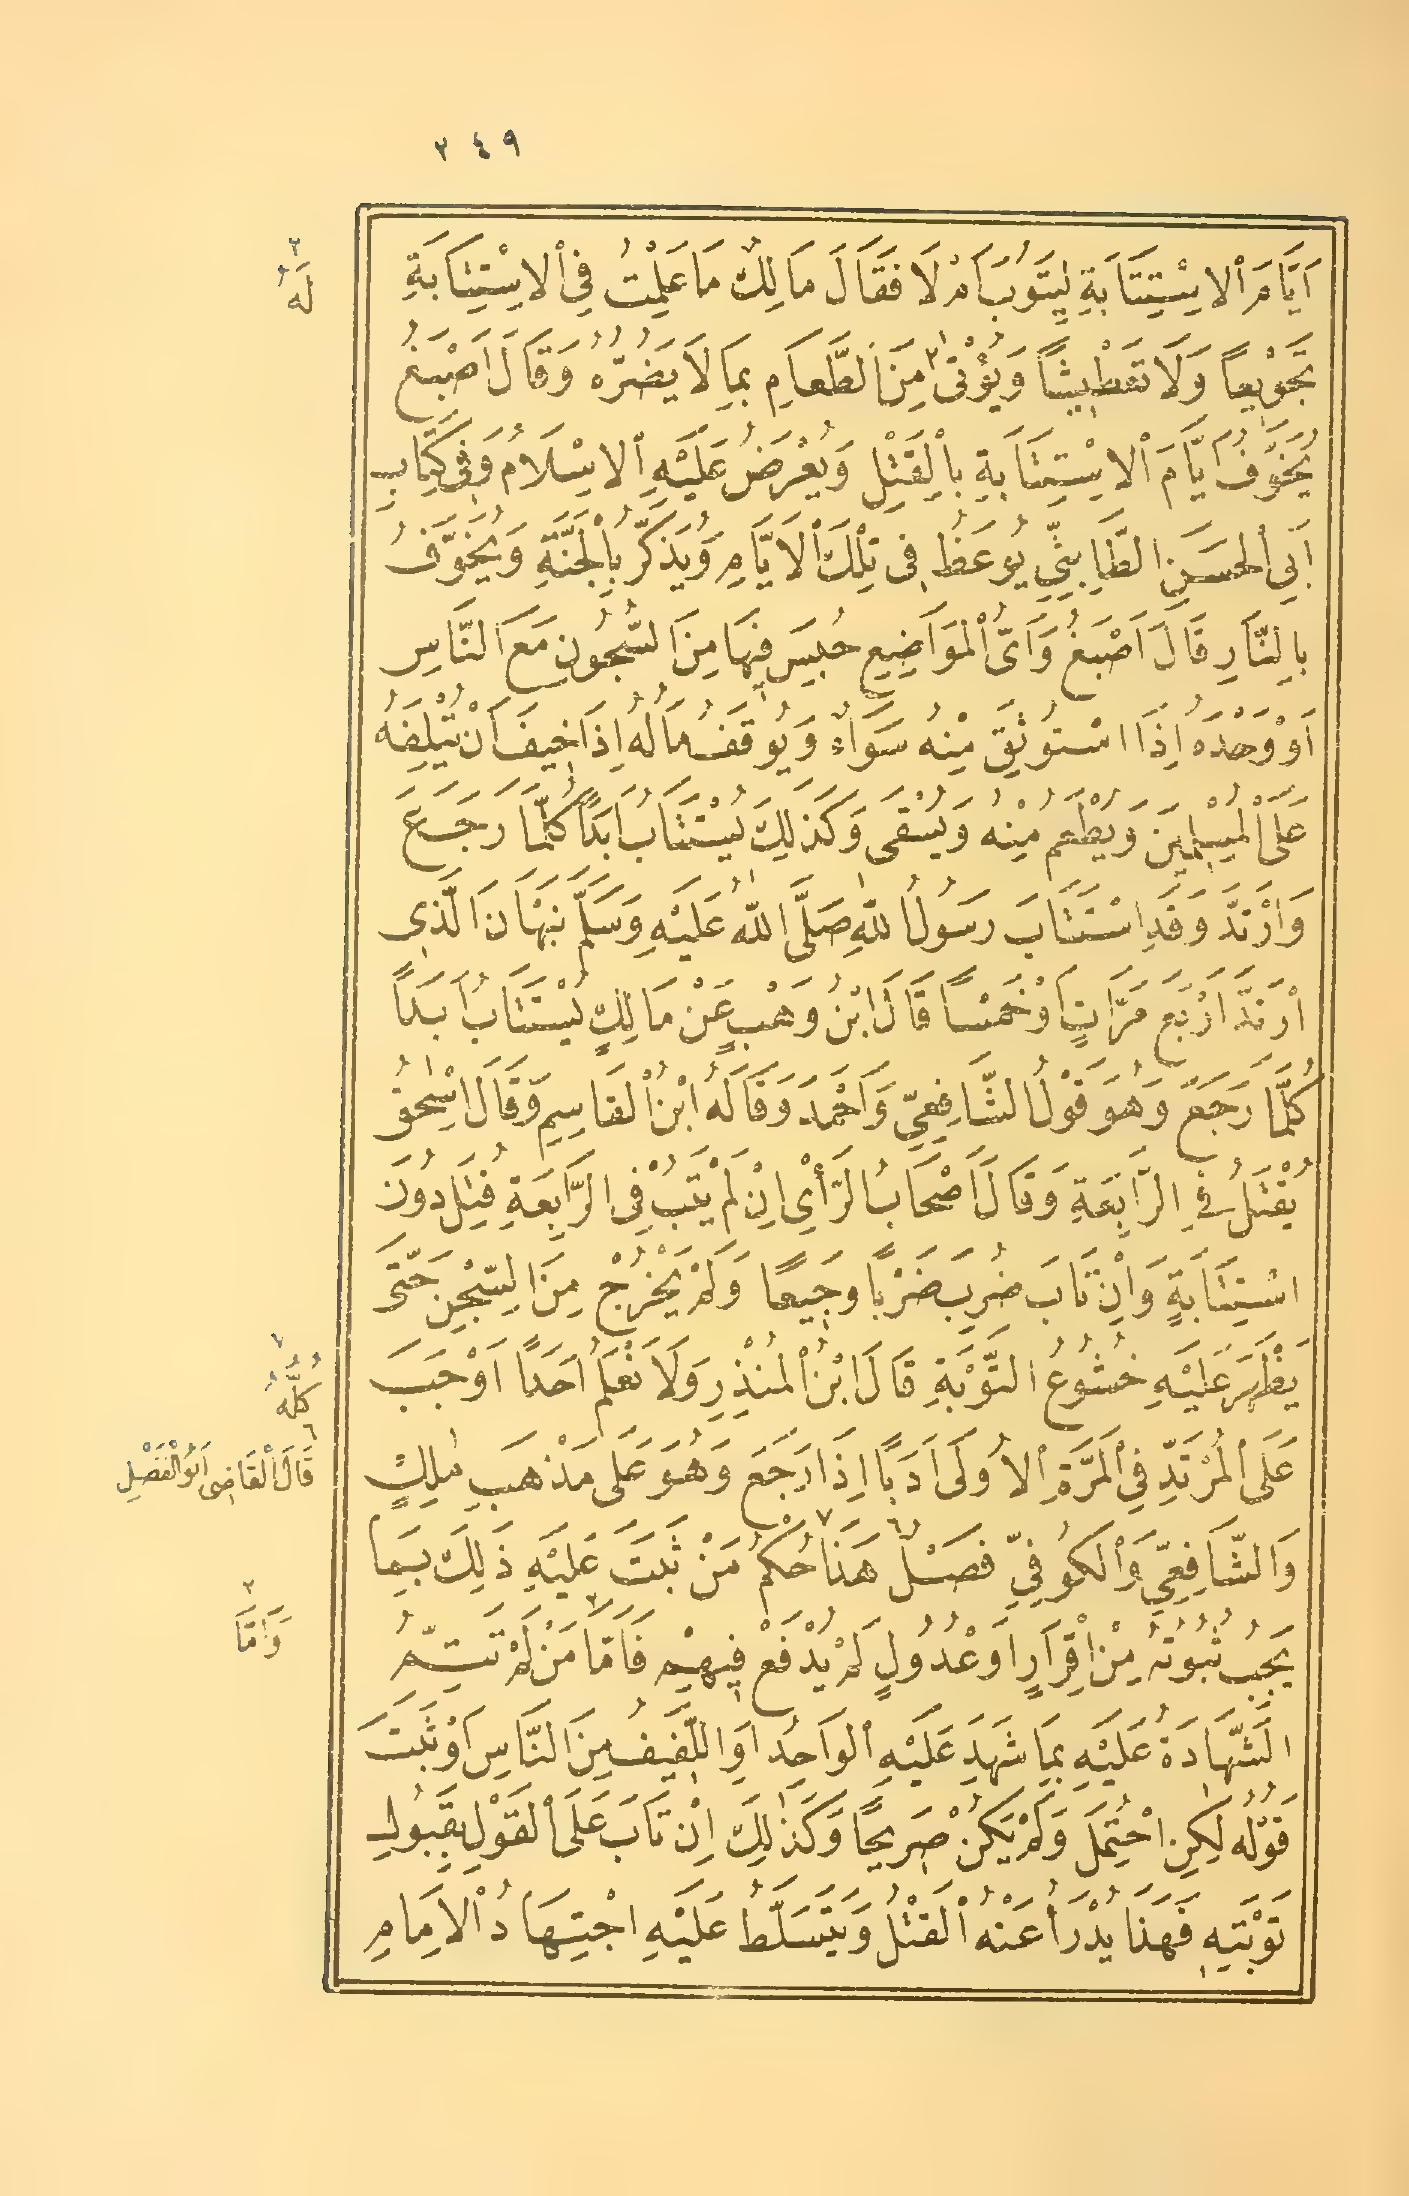 ٢٤٩
اَيَّامَ الْاِسْتِتَابَةِ لِيَتُوبَ اَمْ لَا فَقَالَ مَالِكٌ مَا عَلِمْتُ فِي الْاِسْتِتَابَةِ
تَجْوِيعاً وَلَا تَعْطِيشاً وَيُؤْتٰى مِنَ الطَّعَامِ بِمَا لَا يَضُرُّهُ وَقَالَ اَصْبَغُ
يُخَوَّفُ اَيَّامَ الْاِسْتِتَابَةِ بِالْقَتْلِ وَيُعْرَضُ عَلَيْهِ الْاِسْلَامُ وَفِي كِتَابِ
اَبِي الْحَسَنِ الطَّابِثِيِّ يُوعَظُ فِي تِلْكَ الْاَيَّامِ وَيُذَكَّرُ بِالْجَنَّةِ وَيُخَوَّفُ
بِالنَّارِ قَالَ اَصْبَغُ وَاَيُّ الْمَوَاضِيعِ حُبِسَ فِيهَا مِنَ السُّجُونِ مَعَ النَّاسِ
اَوْ وَحْدَهُ اِذَا اسْتُوثِقَ مِنْهُ سَوَاءٌ وَيُوقَفُ مَالُهُ اِذَا خِيفَ اَنْ يُتْلِفَهُ
عَلَى الْمُسْلِمِينَ وَيُطْعَمُ مِنْهُ وَيُسْقَى وَكَذَلِكَ يُسْتَتَابُ اَبَدًا كُلَّمَا رَجَعَ
وَارْتَدَّ وَقَدِ اسْتَتَابَ رَسُولُ اللّٰهِ صَلَّى اللّٰهُ عَلَيْهِ وَسَلَّمَ نَبْهَانَ الَّذِي
ارْتَدَّ اَرْبَعَ مَرَّاتٍ اَوْ خَمْسًا قَالَ ابْنُ وَهْبٍ عَنْ مَالِكٍ يُسْتَتَابُ اَبَدًا
كُلَّمَا رَجَعَ وَهُوَ قَوْلُ الشَّافِعِيِّ وَاَحْمَدَ وَقَالَهُ ابْنُ الْقَاسِمِ وَقَالَ اِسْحٰقُ
يُقْتَلُ فِي الرَّابِعَةِ وَقَالَ اَصْحَابُ الرَّأْيِ اِنْ لَمْ يَتُبْ فِي الرَّابِعَةِ قُتِلَ دُونَ
اسْتِتَابَةٍ وَاِنْ تَابَ ضُرِبَ ضَرْبًا وَجِيعًا وَلَمْ يَخْرُجْ مِنَ السِّجْنِ حَتَّى
يَظْهَرَ عَلَيْهِ خُشُوعُ التَّوْبَةِ قَالَ ابْنُ الْمُنْذِرِ وَلَا نَعْلَمُ اَحَدًا اَوْجَبَ
عَلَى الْمُرْتَدِّ فِي الْمَرَّةِ الْاُولَى اَدَبًا اِذَا رَجَعَ وَهُوَ عَلَى مَذْهَبِ مٰلِكٍ
وَالشَّافِعِيِّ وَالْكُوفِيِّ فَصْلٌ هَذَا حُكْمُ مَنْ ثَبَتَ عَلَيْهِ ذَلِكَ بِمَا
يَجِبُ ثُبُوتُهُ مِنْ اِقْرَارٍ اَوْ عُدُولٍ لَمْ يُدْفَعْ فِيهِمْ فَاَمَّا مَنْ لَمْ تَتِمَّ
الشَّهَادَةُ عَلَيْهِ بِمَا شَهِدَ عَلَيْهِ الْوَاحِدُ اَوِ اللَّفِيفُ مِنَ النَّاسِ اَوْ ثَبَتَ
قَوْلُهُ لٰكِنِ احْتَمَلَ وَلَمْ يَكُنْ صَرِيحًا وَكَذٰلِكَ اِنْ تَابَ عَلَى الْقَوْلِ بِقَبُولِ
تَوْبَتِهِ فَهَذَا يُدْرَأُ عَنْهُ الْقَتْلُ وَيَتَسَلَّطُ عَلَيْهِ اجْتِهَادُ الْاِمَامِ
٢
لَهُ
٧
كُلُّهُ
٦
قَالَ الْقَاضِي اَبُو الْفَضْلِ
٢
وَاَمَّا